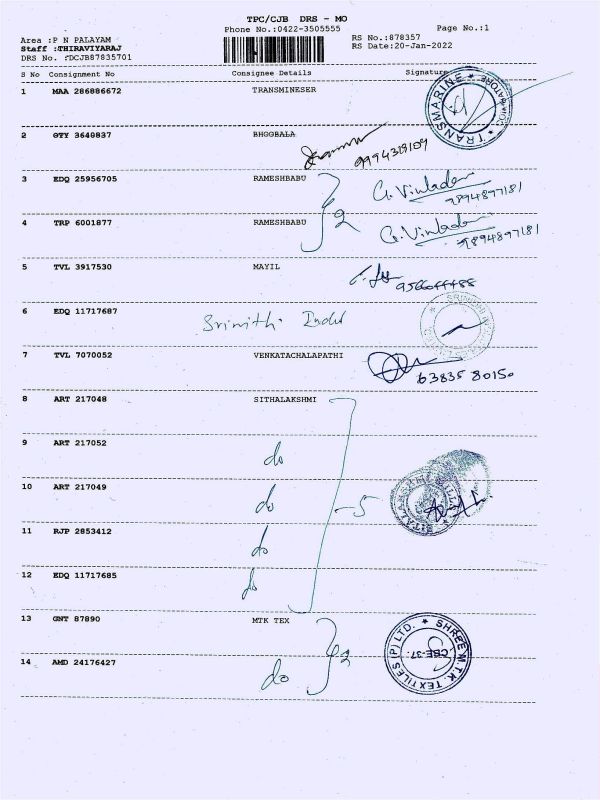 TPC/CJB DRS - MO
Phone No.:0422-3505555 Page No.:1
Area :P N PALAYAM RS No.:878357
Staff :THIRAVIYARAJ RS Date:20-Jan-2022
DRS No. :DCJB87835701
S No Consignment No Consignee Details Signature
1 MAA 286886672 TRANSMINESER
TRANSMARINE
2 GTY 3640837 BHOOBALA
9994319109
3 EDQ 25956705 RAMESHBABU G. Vinladen
9894897181
2
4 TRP 6001877 RAMESHBABU G. Vinladen
9894897181
5 TVL 3917530 MAYIL
9566044488
6 EDQ 11717687 Srinithi Indul
7 TVL 7070052 VENKATACHALAPATHI
63835 80150
8 ART 217048 SITHALAKSHMI
9 ART 217052 do
10 ART 217049 do - 5
11 RJP 2853412 do
12 EDQ 11717685 do
13 GNT 87890 MTK TEX
SHREE M.T.K. TEXTILES (P) LTD.
CBE-37.
2
14 AMD 24176427 do